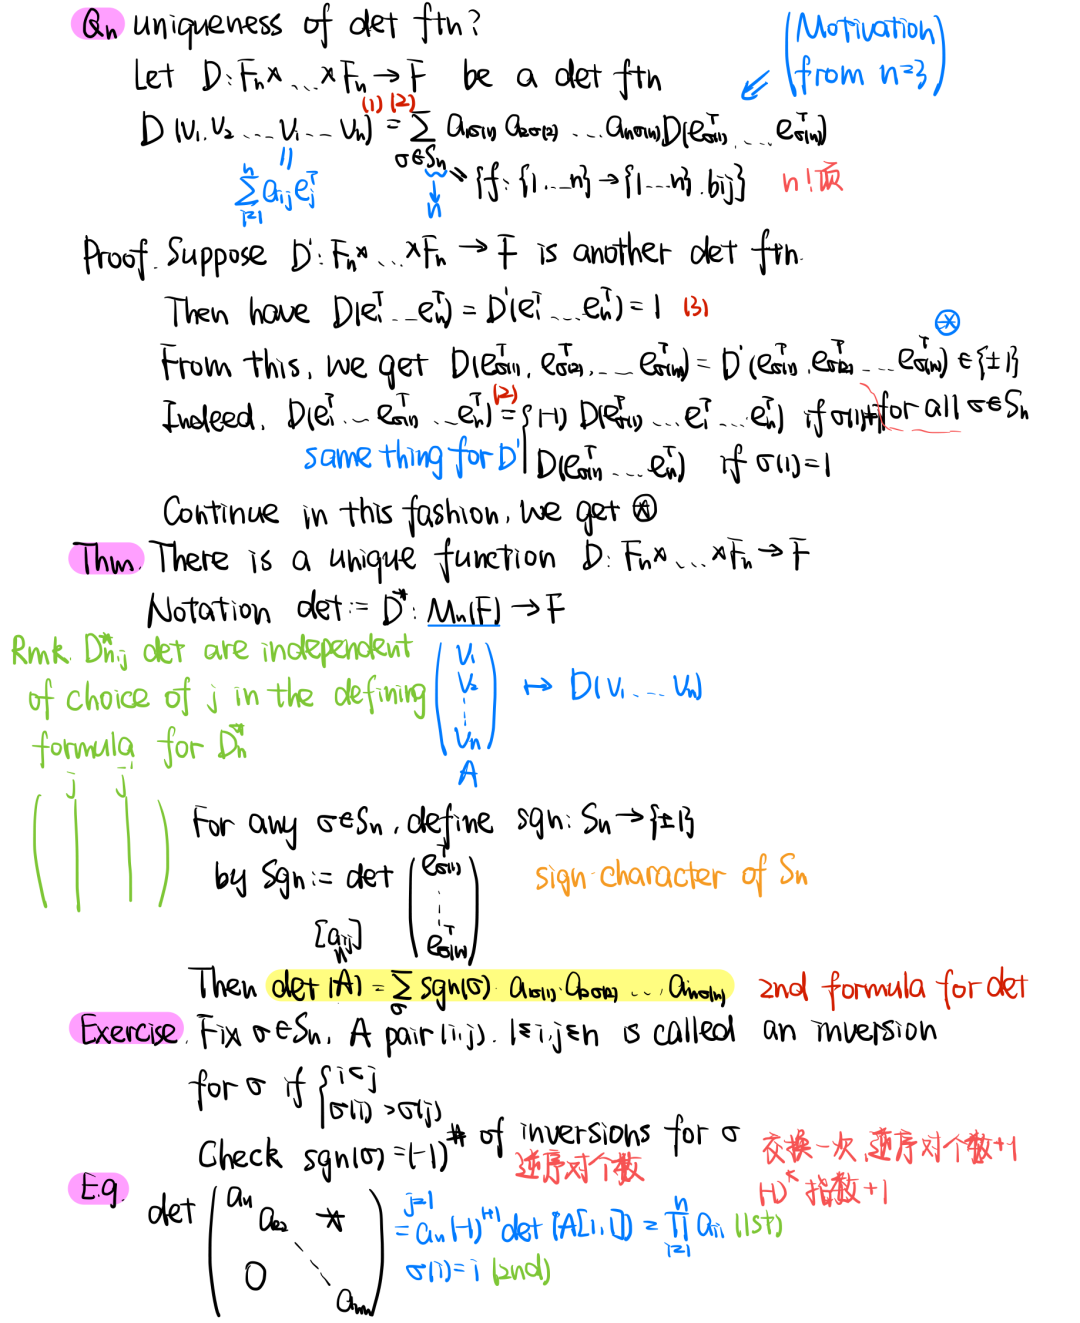 Qn uniqueness of det ftn?
(Motivation from n=3)
Let D: Fn × ... × Fn → F be a det ftn
D(v₁, v₂ ... vᵢ ... vₙ) =⁽¹⁾⁽²⁾ Σ_{σ∈Sn} a₁σ(₁) a₂σ(₂) ... aₙσ(ₙ) D(e^T_σ(1), ... e^T_σ(n))
|| Σ_{j=1}^n aᵢⱼ eⱼ^T
↓ n
{f: {1, ... n} → {1 ... n}. bij} n!项
Proof. Suppose D': Fn × ... × Fn → F is another det ftn.
Then have D(e₁^T ... eₙ^T) = D'(e₁^T ... eₙ^T) = 1 (3)
From this, we get D(e^T_σ(1), e^T_σ(2), ... e^T_σ(n)) = D'(e^T_σ(1), e^T_σ(2) ... e^T_σ(n)) ∈ {±1} ⊛
for all σ∈Sn
Indeed, D(e₁^T ... e^T_σ(1) ... eₙ^T) =⁽²⁾ { (-1) D(e^T_σ(1) ... e₁^T ... eₙ^T) if σ(1)≠1
same thing for D' D(e^T_σ(1) ... eₙ^T) if σ(1)=1
Continue in this fashion, we get ⊛
Thm. There is a unique function D: Fn × ... × Fn → F
Notation det := D*: Mn(F) → F
(v₁ v₂ ⋮ vₙ) ↦ D(v₁ ... vₙ)
A
Rmk. D*n,j det are independent
of choice of j in the defining
formula for D*n
j j
For any σ∈Sn, define sgn: Sn → {±1}
by Sgn := det (e^T_σ(1) ⋮ e^T_σ(n)) sign-character of Sn
[aᵢⱼ]
Then det(A) = Σ_σ sgn(σ) · a₁σ(₁) · a₂σ(₂) ... aₙσ(ₙ) 2nd formula for det
Exercise. Fix σ∈Sn, A pair (i,j). 1≤i,j≤n is called an inversion
for σ if { i<j
σ(i) > σ(j)
Check sgn(σ) = (-1)^# of inversions for σ
逆序对个数
交换一次,逆序对个数+1
(-1)^* 指数+1
E.g. det (a₁₁ a₂₂ * 0 ⋱ aₙₙ) =^{j=1} a₁₁ (-1)^{1+1} det(A[1,1]) = Π_{i=1}^n aᵢᵢ (1st)
σ(i) = i (2nd)